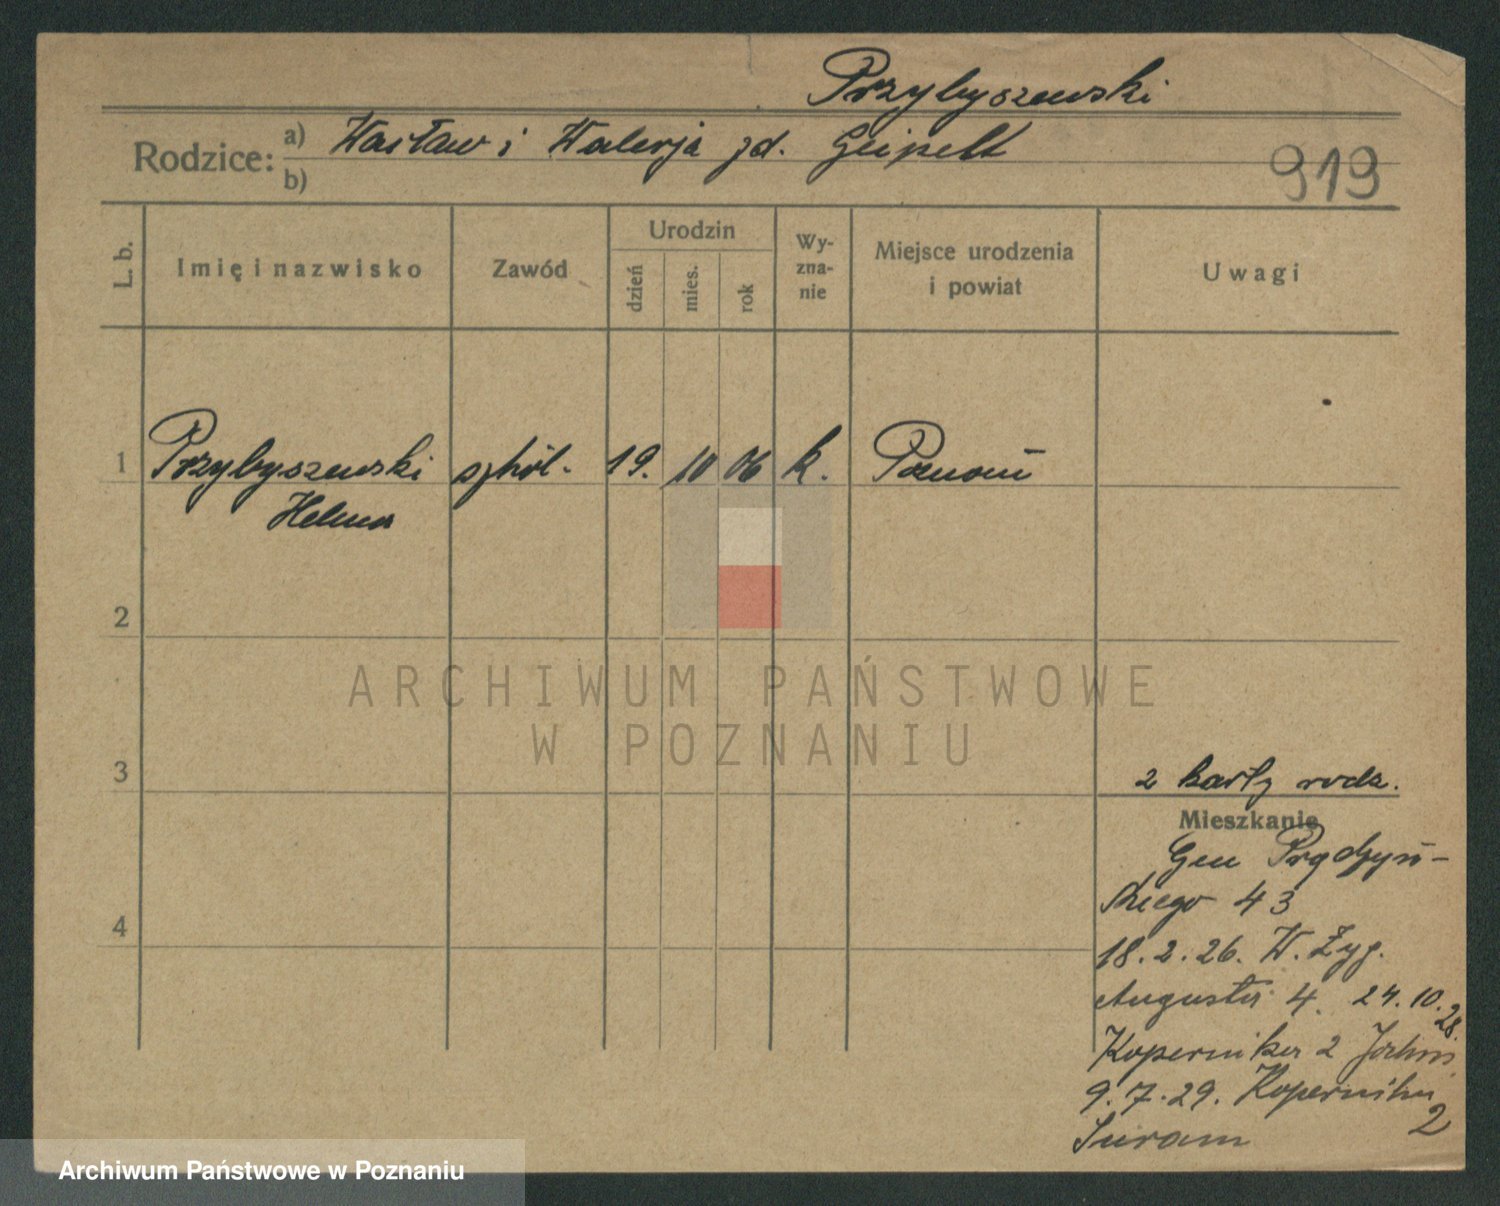 Przybyszewski
Rodzice: a) Wacław i Walerja zd. Geipelt
b)
919
L. b.
Imię i nazwisko
Zawód
Urodzin
dzień
mies.
rok
Wy-
zna-
nie
Miejsce urodzenia
i powiat
Uwagi
1 Przybyszewski szkół. 19. 10 06 k. Poznań
Helena
2
3
4
ARCHIWUM PAŃSTWOWE
W POZNANIU
2 karty rodz.
Mieszkanie
Gen Prądzyń-
skiego 43
18.2.26. W. Zyg.
Augusta 4. 24.10.28.
Kopernika 2
9.7.29. Kopernika
2
Archiwum Państwowe w Poznaniu